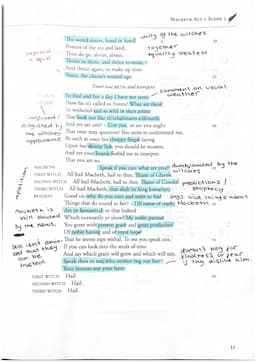 MACBETH ACT 1 SCENE 3
The weird sisters, hand in hand,
unity of the witches
Posters of the sea and land,
together
Thus do go, about, about,
equally treated
Thrice to thine, and thrice to mine,
And thrice again, to make up nine.
Peace, the charm's wound up.
Enter MACBETH and BANQUO
comment on usual weather
So foul and fair a day I have not seen.
How far is't called to Forres? What are these
So withered and so wild in their attire,
That look not like th'inhabitants o'th'earth
disgusted by
the witches
appearance
And yet are on't? – Live you, or are you aught
That man may question? You seem to understand me,
By each at once her choppy finger laying
Upon her skinny lips; you should be women,
And yet your beards forbid me to interpret
That you are so.
MACBETH Speak if you can: what are you?
dumbfounded by the
witches
FIRST WITCH All hail Macbeth, hail to thee, Thane of Glamis.
SECOND WITCH All hail Macbeth, hail to thee, Thane of Cawdor.
predictions /
prophecy
THIRD WITCH All hail Macbeth, that shalt be king hereafter.
repetition
BANQUO Good sir, why do you start and seem to fear
says nice things about
Macbeth
Things that do sound so fair? – I'th'name of truth
Macbeth is
still shocked
by the news.
Are ye fantastical, or that indeed
Which outwardly ye show? My noble partner
You greet with present grace and great prediction
Of noble having and of royal hope
That he seems rapt withal. To me you speak not.
still isn't
that they can
be trusted
If you can look into the seeds of time
And say which grain will grow and which will not,
doesn't beg for
kindness or fear
if they dislike him.
Speak then to me, who neither beg nor fear
Your favours nor your hate.
FIRST WITCH Hail.
SECOND WITCH Hail.
THIRD WITCH Hail.
11